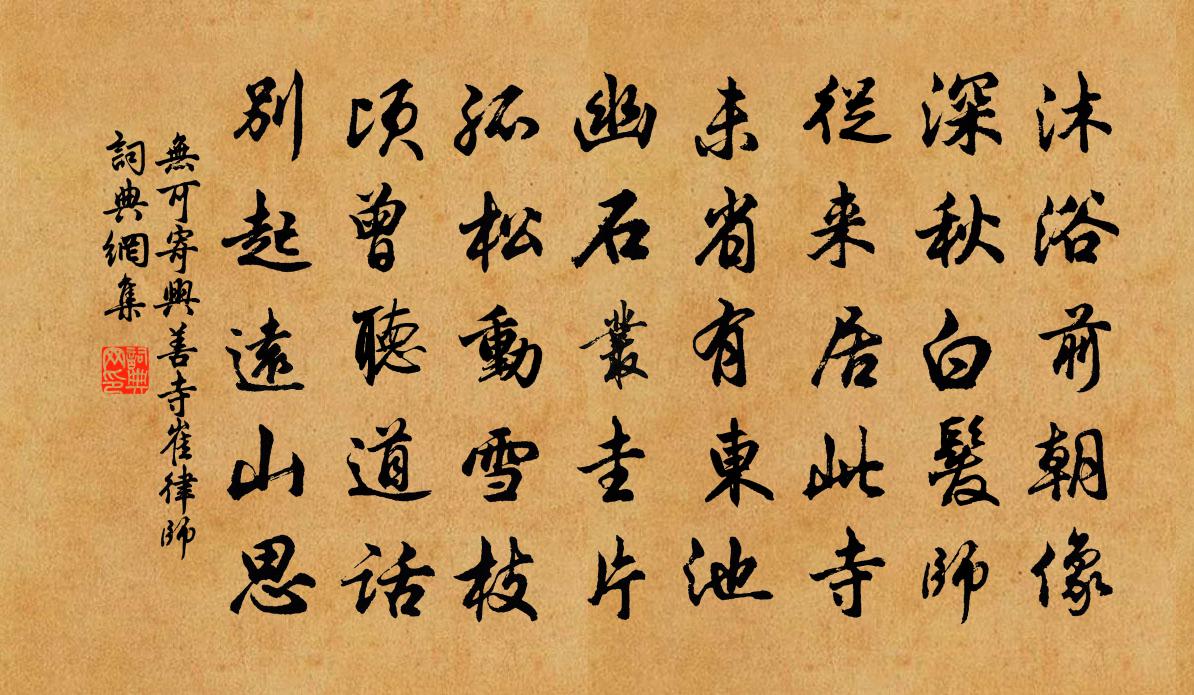 沐浴前朝像
深秋白髮師
從来居此寺
未省有東池
幽石叢圭片
孤松動雪枝
頃曾聽道話
別起遠山思
無可寄興善寺崔律師
詞典網集